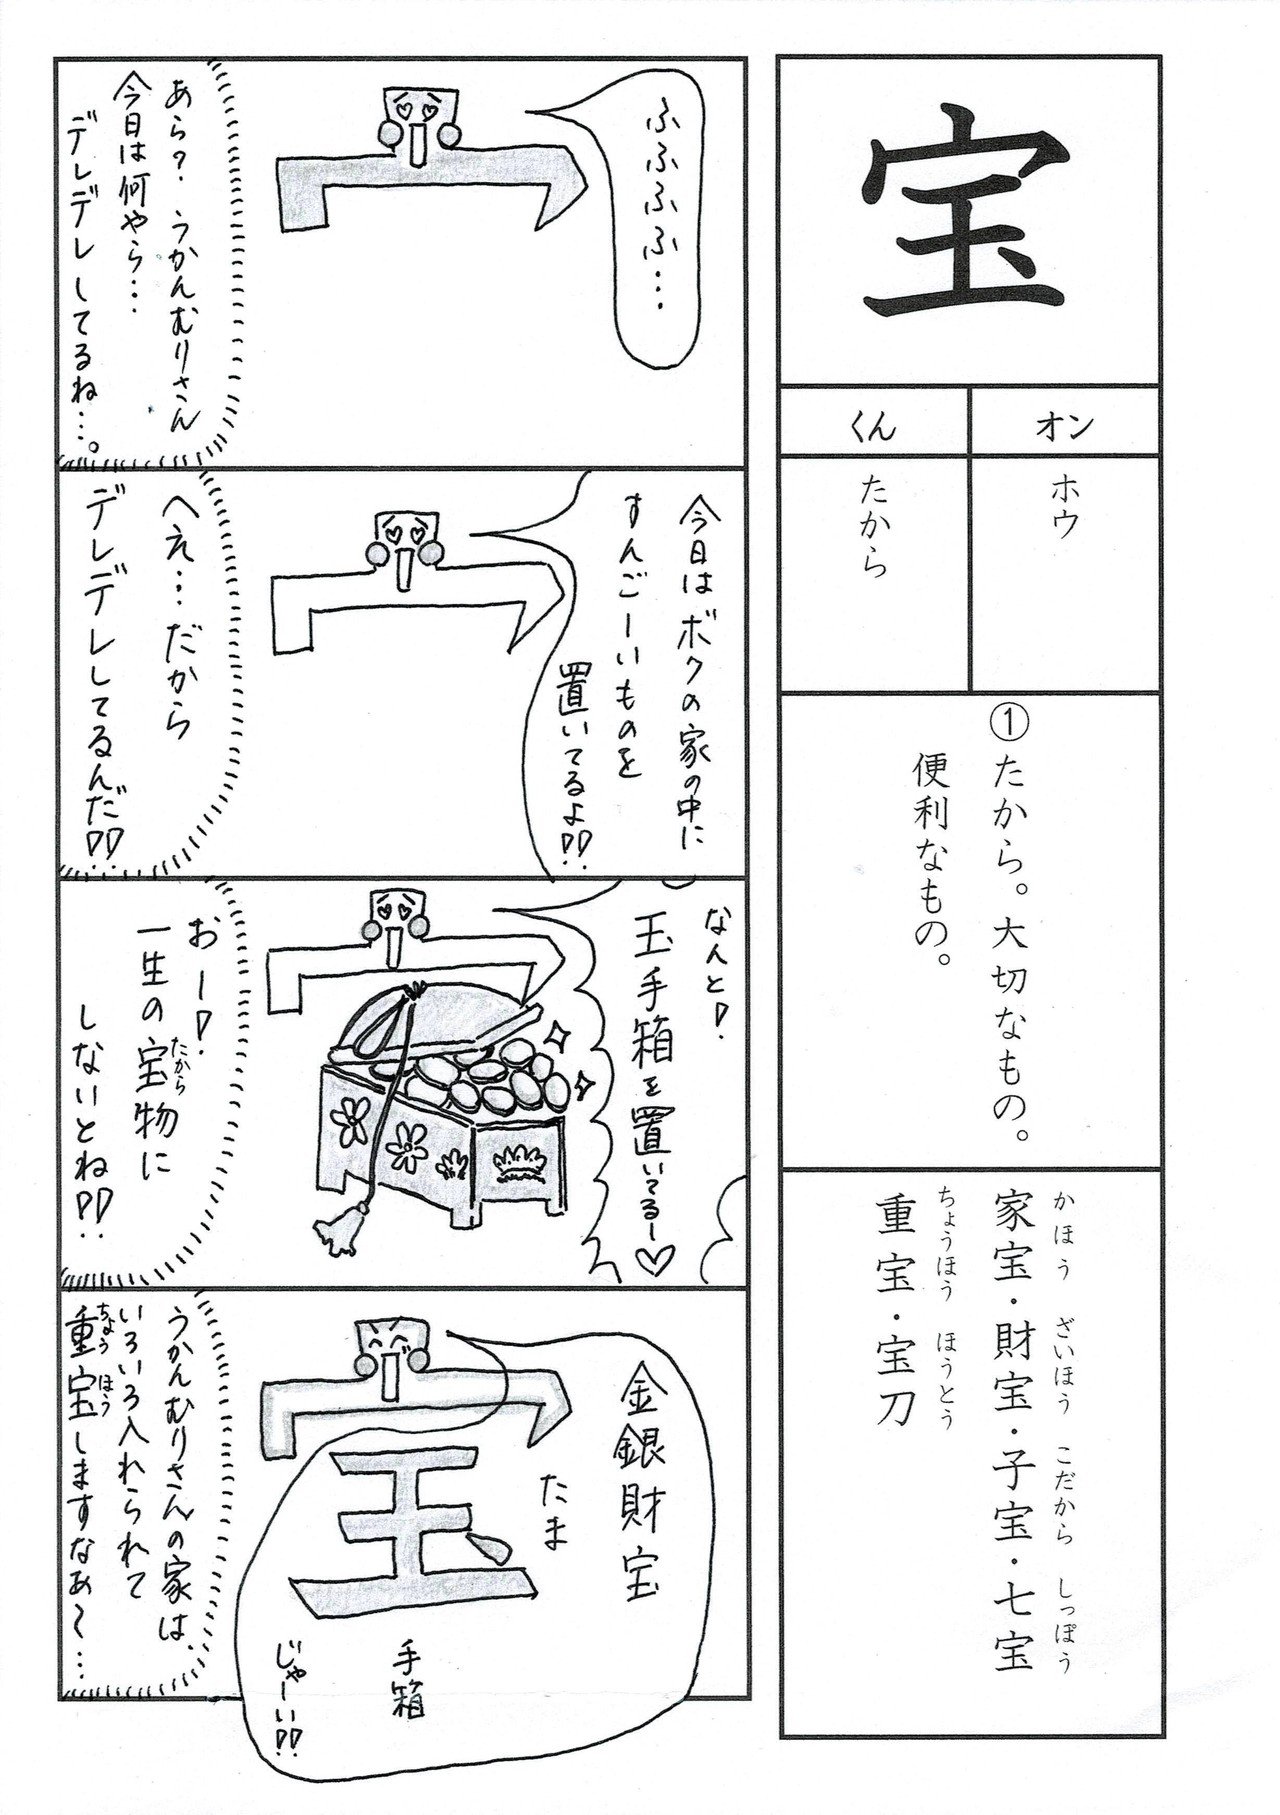 宝
オン
ホウ
くん
たから
①たから。大切なもの。
便利なもの。
かほう ざいほう こだから しっぽう
家宝・財宝・子宝・七宝
ちょうほう ほうとう
重宝・宝刀
ふふふふ…
あら？うかんむりさん
今日は何やら…
デレデレしてるね…。
今日はボクの家の中に
すんごーいものを
置いてるよ!!
へえ…だから
デレデレしてるんだ!!
なんと!
玉手箱を置いてるー♡
おー!
一生の宝物に
たから
しないとね!!
金銀財宝
たま
玉
手箱
じゃーい!!
うかんむりさんの家は、
いろいろ入れられて
ちょうほう
重宝しますなあ〜…